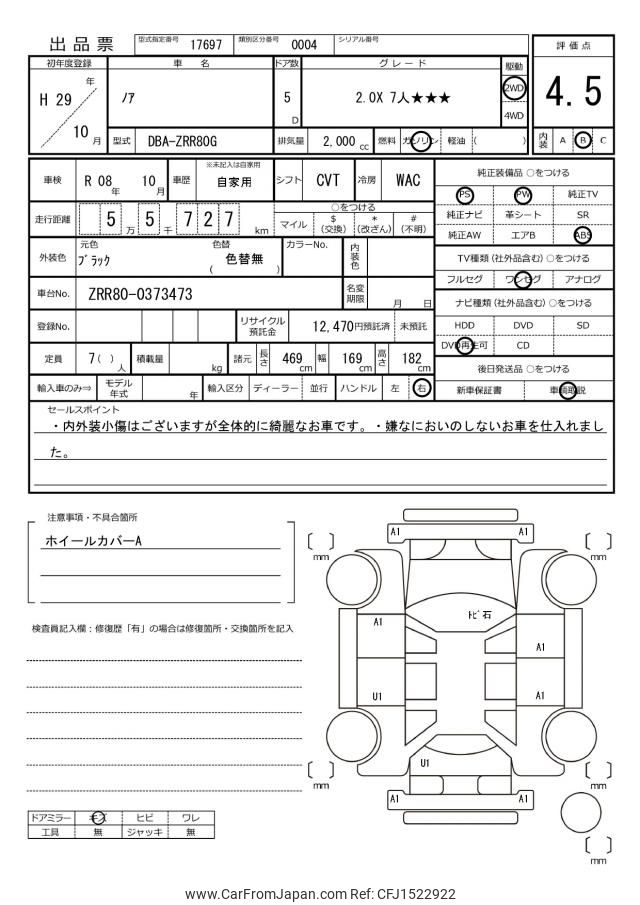 出品票 型式指定番号 17697 類別区分番号 0004 シリアル番号
評価点
4.5
内装 A B C
初年度登録 車名 ドア数 グレード 駆動
H 29 年 10 月
ノア 5 D 2.0X 7人★★★ 2WD 4WD
型式 DBA-ZRR80G 排気量 2,000 cc 燃料 ガソリン 軽油 ( )
車検 R 08 年 10 月 車歴 ※未記入は自家用 自家用 シフト CVT 冷房 WAC
純正装備品 ○をつける
PS PW 純正TV
純正ナビ 革シート SR
純正AW エアB ABS
走行距離 5 5 万 千 7 2 7 km
○をつける
マイル $ (交換) * (改ざん) # (不明)
外装色 元色 ブラック 色替 ( 色替無 ) カラーNo. 内装色
TV種類 (社外品含む) ○をつける
フルセグ ワンセグ アナログ
車台No. ZRR80-0373473 名変期限 月 日
ナビ種類 (社外品含む) ○をつける
HDD DVD SD
DVD再生可 CD
登録No. リサイクル預託金 12,470円預託済 未預託
定員 7( ) 人 積載量 kg 諸元 長さ 469 cm 幅 169 cm 高さ 182 cm
後日発送品 ○をつける
新車保証書 車輌取説
輸入車のみ⇒ モデル年式 年 輸入区分 ディーラー 並行 ハンドル 左 右
セールスポイント
・内外装小傷はございますが全体的に綺麗なお車です。・嫌なにおいのしないお車を仕入れまし
た。
注意事項・不具合箇所
ホイールカバーA
検査員記入欄：修復歴「有」の場合は修復箇所・交換箇所を記入
A1 A1
[ ] mm [ ] mm
トビ石
A1
A1
U1 A1
U1
[ ] mm [ ] mm
A1 A1
[ ] mm
ドアミラー キズ ヒビ ワレ
工具 無 ジャッキ 無
www.CarFromJapan.com Ref: CFJ1522922